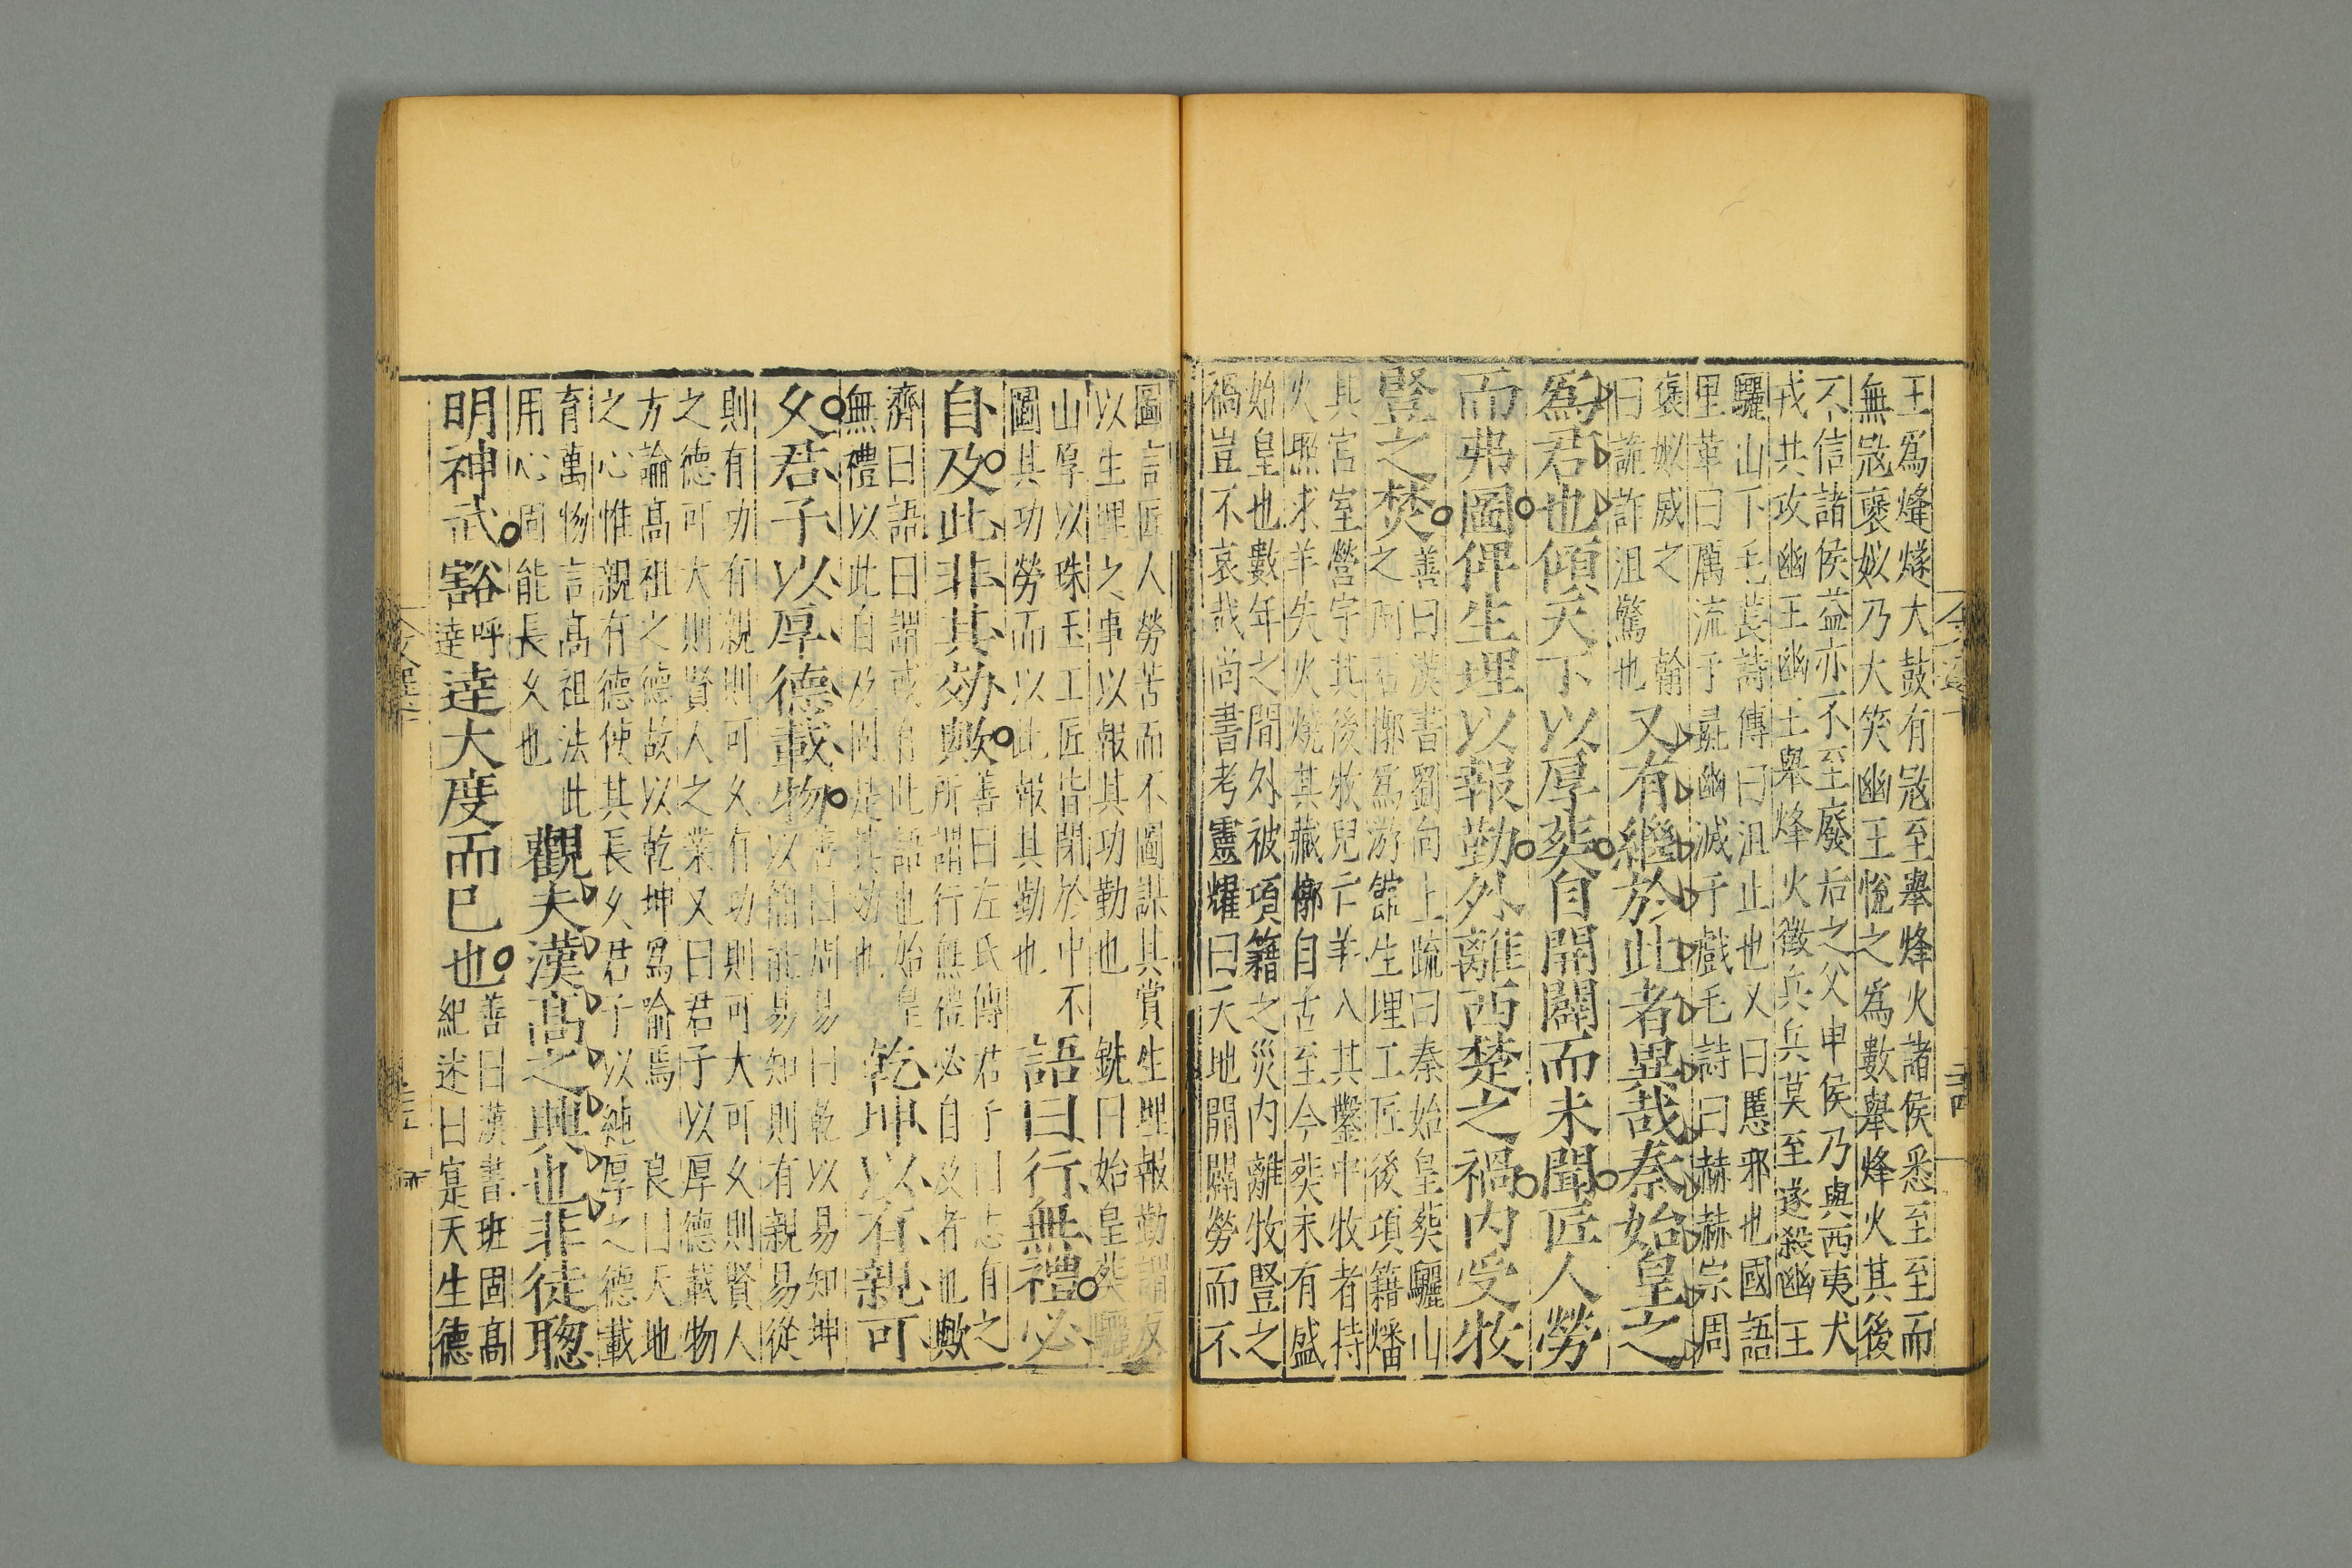 王爲烽燧大鼓有寇至舉烽火諸侯悉至至而
無寇褒姒乃大笑幽王悅之爲數舉烽火其後
不信諸侯益亦不至廢后之父申侯乃與西夷犬
戎共攻幽王幽王舉烽火徵兵兵莫至遂殺幽王
驪山下毛萇詩傳曰沮止也又曰慝邪也國語
里革曰厲流于彘幽滅于戲毛詩曰赫赫宗周
褒姒威之 翰
曰詭詐沮驚也
又有繼於此者異哉秦始皇之
爲君也傾天下以厚葬自開闢而未聞匠人勞
而弗圖俾生埋以報勤外離西楚之禍内受牧
豎之焚
善曰漢書劉向上疏曰秦始皇葬驪山
之阿石槨爲游館生埋工匠後項籍燔
其宮室營宇其後牧兒亡羊入其鑿中牧者持
火照求羊失火燒其藏槨自古至今葬未有盛
始皇也數年之間外被項籍之災内離牧豎之
禍豈不哀哉尚書考靈耀曰天地開闢勞而不
圖言匠人勞苦而不圖謀其賞生埋報勤謂反
以生埋之事以報其功勤也 銑曰始皇葬驪
山厚以珠玉工匠皆閉於中不
圖其功勞而以此報其勤也
語曰行無禮必
自及此非其効歟
善曰左氏傳君子曰志有之
所謂行無禮必自及者也歟
濟曰語曰謂或有此語也始皇
無禮以此自及是其効也
乾坤以有親可
久君子以厚德載物
善曰周易曰乾以易知坤
以簡能易知則有親易從
則有功有親則可久有功則可大可久則賢人
之德可大則賢人之業又曰君子以厚德載物
方論高祖之德故以乾坤爲喻焉 良曰天地
之心惟親有德使其長久君子以純厚之德載
育萬物言高祖法此
用心固能長久也
觀夫漢髙之興也非徒聦
明神武豁呼達達大度而已也
善曰漢書班固髙
紀述曰寔天生德